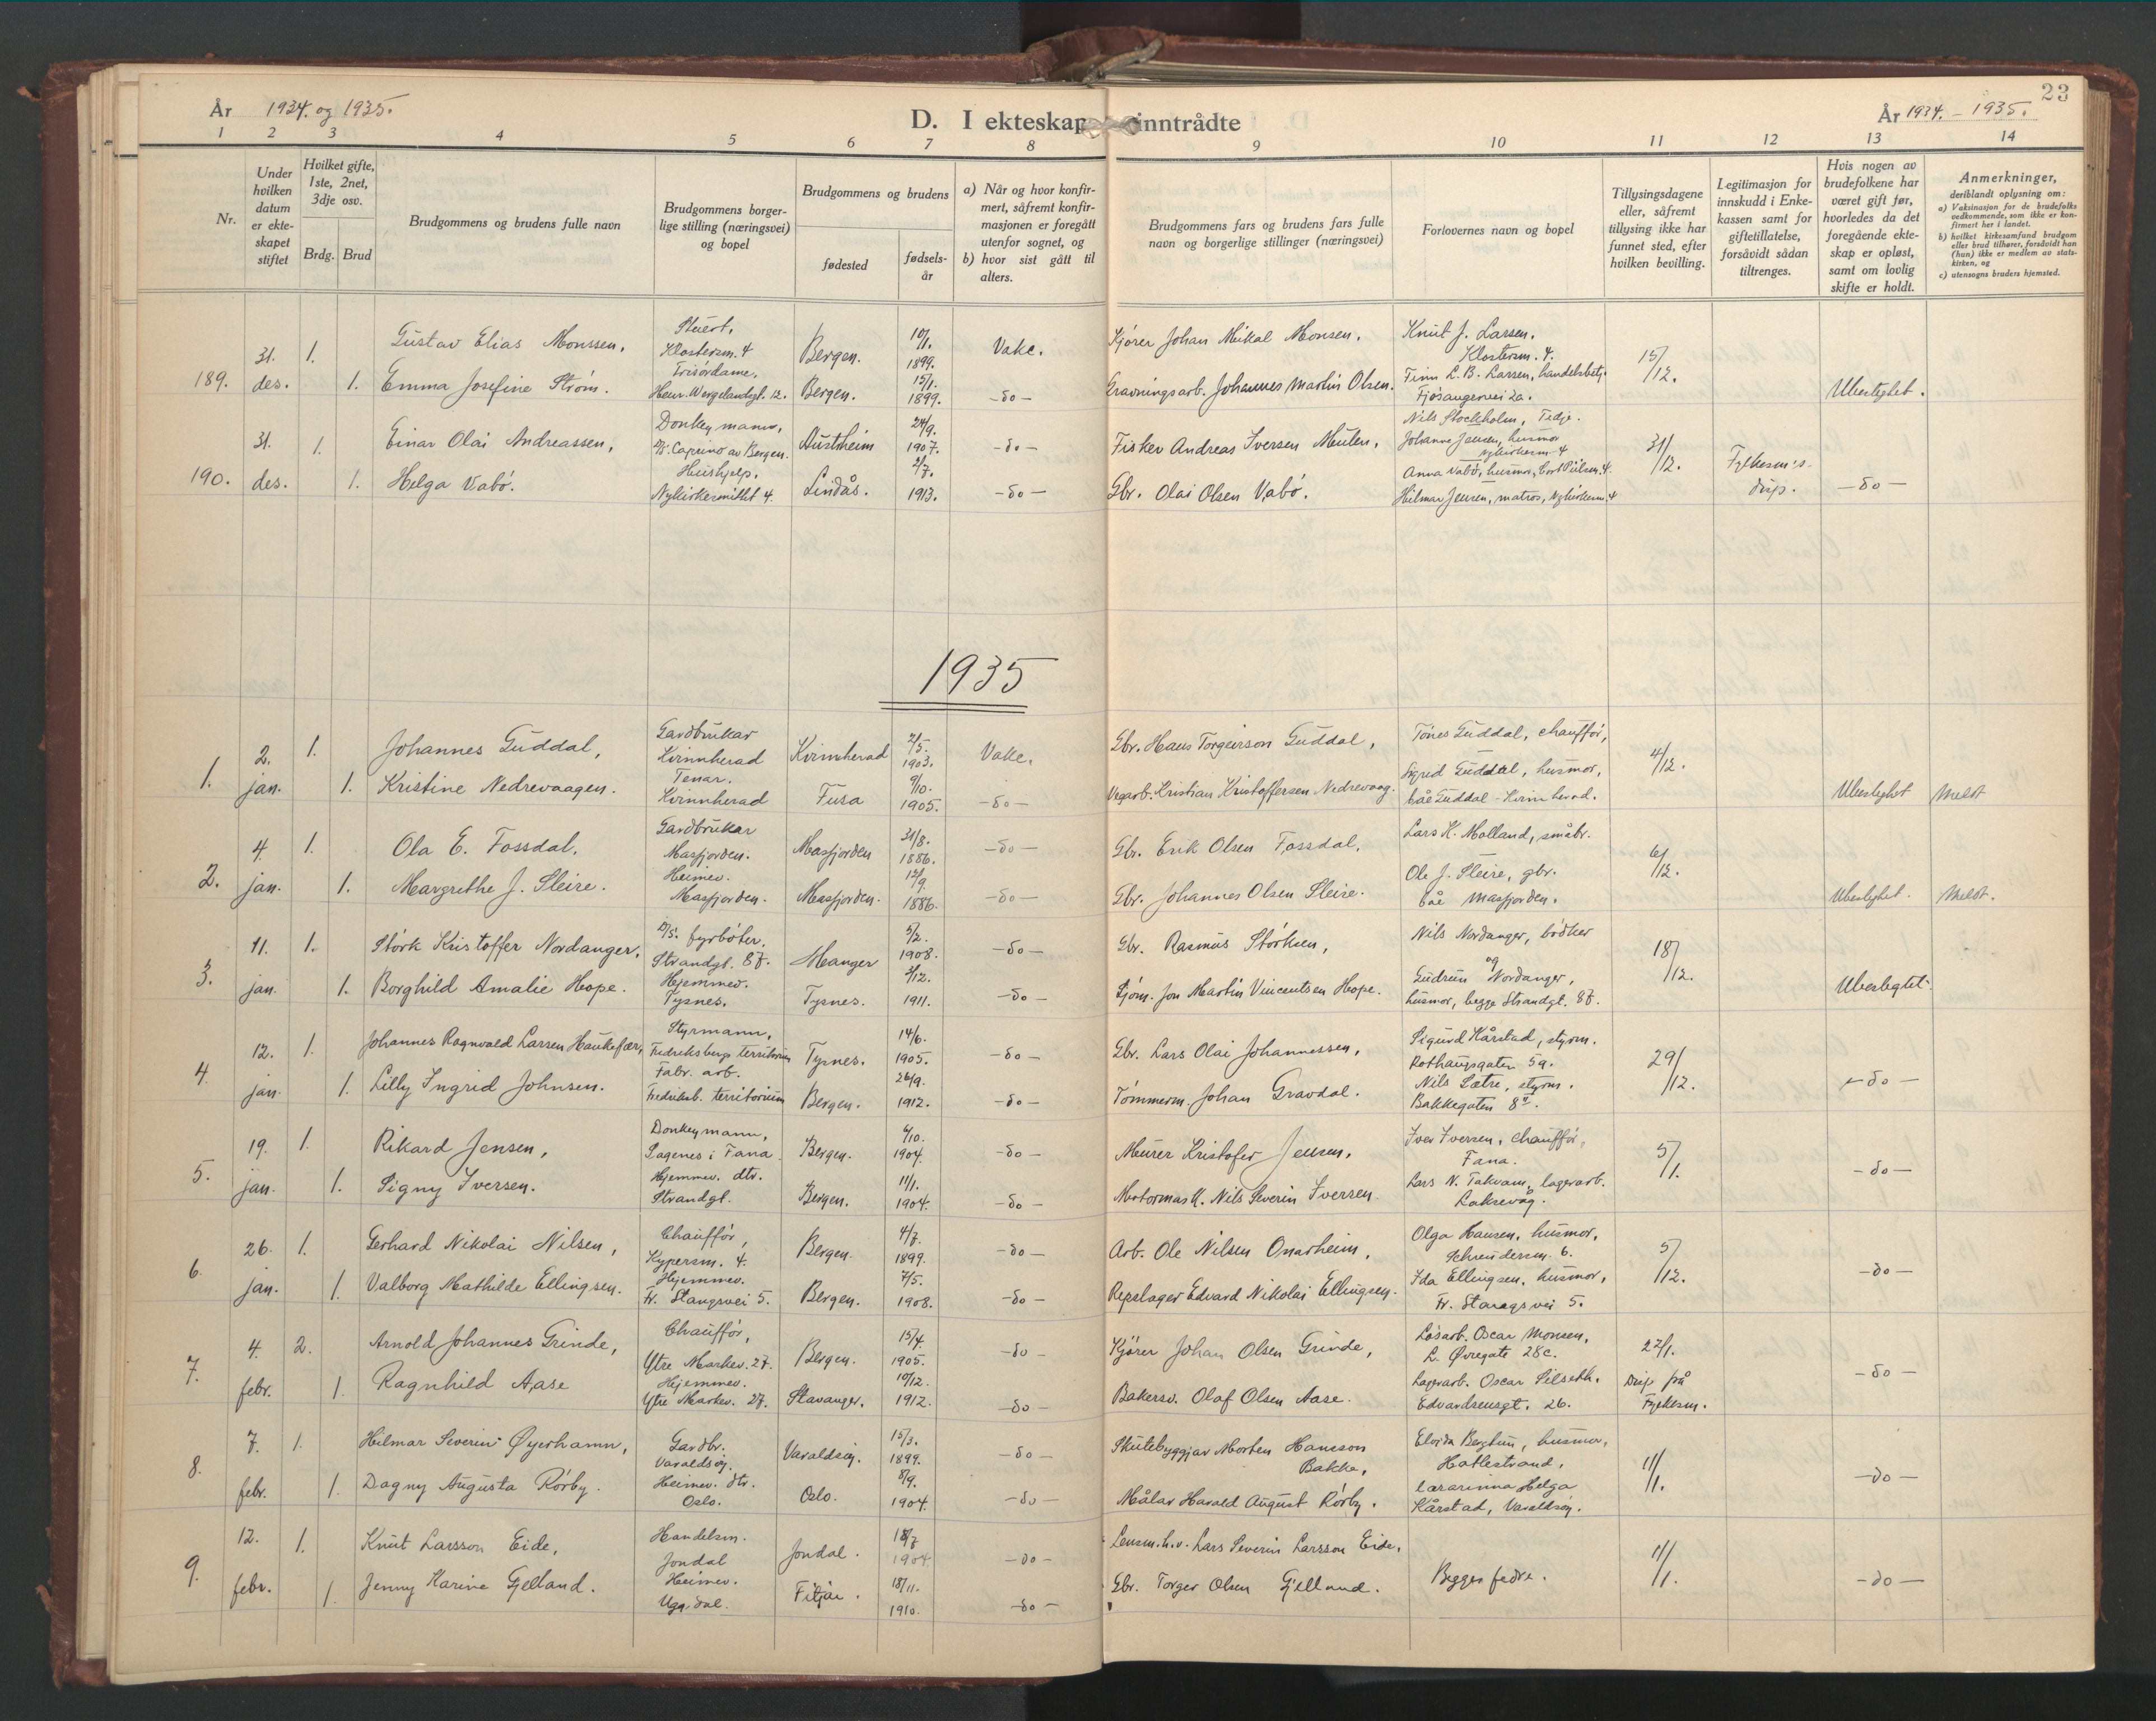 År 1934. og 1935.
D. I ekteskap inntrådte
År 1934. – 1935.
23
1 2 3 4 5 6 7 8 9 10 11 12 13 14
Nr.
Under hvilken datum er ekteskapet stiftet
Hvilket gifte, 1ste, 2net, 3dje osv.
Brdg. Brud
Brudgommens og brudens fulle navn
Brudgommens borgerlige stilling (næringsvei) og bopel
Brudgommens og brudens
fødested
fødselsår
a) Når og hvor konfirmert, såfremt konfirmasjonen er foregått utenfor sognet, og
b) hvor sist gått til alters.
Brudgommens fars og brudens fars fulle navn og borgerlige stillinger (næringsvei)
Forlovernes navn og bopel
Tillysingsdagene eller, såfremt tillysing ikke har funnet sted, efter hvilken bevilling.
Legitimasjon for innskudd i Enkekassen samt for giftetillatelse, forsåvidt sådan tiltrenges.
Hvis nogen av brudefolkene har været gift før, hvorledes da det foregående ekteskap er opløst, samt om lovlig skifte er holdt.
Anmerkninger,
deriblandt oplysning om:
a) Vaksinasjon for de brudefolks vedkommende, som ikke er konfirmert her i landet.
b) hvilket kirkesamfund brudgom eller brud tilhører, forsåvidt han (hun) ikke er medlem av statskirken, og
c) utensogns bruders hjemsted.
189. 31. des. 1. Gustav Elias Monssen, Stuert, Klostersm. 4 Bergen. 10/1. 1899. Vakc. Kjører Johan Mikal Monsen. Knut J. Larsen, Klostersm. 4. 15/12.
1. Emma Josefine Strøm. Frisørdame, Henr. Wergelandsgt. 12. Bergen. 15/1. 1899. –do– Gravningsarb. Johannes Martin Olsen. Finn L. B. Larsen, handelsbetj. Fjøsangervei 2a. Ubeslegtet.
190. 31. des. 1. Einar Olai Andreassen, Donkeymann, D/S. Caprino av Bergen. Austheim 24/9. 1907. –do– Fisker Andreas Iversen Mulen, Nils Stockholm, Fedje. Johanne Jensen, husmor Nykirkesm. 4 31/12. Fylkesm's. disp.
1. Helga Vabö. Hushjelp, Nykirkesmitlet 4. Lindås. 2/7. 1913. –do– Gbr. Olai Olsen Vabö. Anna Vabö, husmor, Cort Piilsm. 4. Hilmar Jensen, matros, Nykirkesm. 4 –do–
1935
1. 2. jan. 1. Johannes Guddal, Gardbrukar Kvinnherad Kvinnherad 2/5. 1903. Vakc. Gbr. Haus Torgeirson Guddal, Tönes Guddal, chauffør, 4/12.
1. Kristine Nedrevaagen. Tenar. Kvinnherad Fusa 9/10. 1905. –do– Vegarb. Kristian Kristoffersen Nedrevaag. Sigrid Guddal, husmor, båe Guddal – Kvinnherad. Ubeslegtet Meldt
2. 4. jan. 1. Ola E. Fossdal, Gardbrukar Masfjorden. Masfjorden 31/8. 1886. –do– Gbr. Erik Olsen Fossdal, Lars K. Molland, småbr. 6/12.
1. Margrethe J. Sleire. Heimev. Masfjorden. Masfjorden. 12/9. 1886. –do– Gbr. Johannes Olsen Sleire. Ole J. Sleire, gbr. båe Masfjorden. Ubeslegtet. Meldt.
3. 11. jan. 1. Störk Kristoffer Nordanger, D/S. fyrbøter, Strandgt. 87. Manger 5/2. 1908. –do– Gbr. Rasmus Störksen, Nils Nordanger, bödker og 18/12.
1. Borghild Amalie Hope. Hjemmev. Tysnes. Tysnes. 3/12. 1911. –do– Sjöm. Jon Martin Vincentsen Hope. Gudrun Nordanger, husmor, begge Strandgt. 87. Ubeslegtet.
4. 12. jan. 1. Johannes Ragnvald Larsen Haukefær, Styrmann, Fredriksbergs territorium Tysnes. 14/6. 1905. –do– Gbr. Lars Olai Johannessen, Sigurd Kårstad, styrm. Rothaugsgaten 5a. 29/12.
1. Lilly Ingrid Johnsen. Fabr. arb. Fredriksb. territorium Bergen. 26/9. 1912. –do– Tömmerm. Johan Gravdal. Nils Sætre, styrm. Bakkegaten 8a. –do–
5. 19. jan. 1. Rikard Jensen, Donkeymann, Sagenes i Fana Bergen. 6/10. 1904. –do– Murer Kristofer Jensen, Iver Iversen, chauffør, Fana. 5/1.
1. Signy Iversen. Hjemmev. dtr. Strandgt. Bergen. 11/1. 1904. –do– Motormask. Nils Severin Iversen Lars N. Takvam, lagerarb. Laksevåg. –do–
6. 26. jan. 1. Gerhard Nikolai Nilsen, Chauffør, Kypersm. 4. Bergen. 4/7. 1899. –do– Arb. Ole Nilsen Onarheim, Olga Hansen, husmor, Schreudersm. 6. 5/12.
1. Valborg Mathilde Ellingsen. Hjemmev. Fr. Stangsvei 5. Bergen. 7/5. 1908. –do– Repslager Edvard Nikolai Ellingsen. Ida Ellingsen, husmor, Fr. Stangsvei 5. –do–
7. 4. febr. 2. Arnold Johannes Grinde, Chauffør, Ytre Markev. 27. Bergen. 15/4. 1905. –do– Kjører Johan Olsen Grinde, Løsarb. Oscar Monsen, L. Øvregate 28c. 22/1.
1. Ragnhild Aase Hjemmev. Ytre Markev. 27. Stavanger. 10/12. 1912. –do– Bakersv. Olaf Olsen Aase. Lagerarb. Oscar Silseth. Edvardsensgt. 26. Disp på Fylkesm. –do–
8. 7. febr. 1. Hilmar Severin Øyerhamn, Gardbr. Varaldsöy. Varaldsöy. 15/3. 1899. –do– Skutebyggjar Morten Hansson Bakke, Elvida Bergtun, husmor, Hatlestrand, 11/1.
1. Dagny Augusta Rörby. Heimev. dtr. Oslo. Oslo. 8/9. 1904. –do– Målar Harald August Rörby. lærarinna Helga Kårstad, Varaldsöy. –do–
9. 12. febr. 1. Knut Larsson Eide, Handelsm. Jondal Jondal. 18/7 1904. –do– Lensm. h.v. Lars Severin Larsson Eide, Begges fedre. 11/1.
1. Jenny Karine Gjelland. Heimev. Uggdal. Fitjar. 18/11. 1910. –do– Gbr. Torger Olsen Gjelland. –do–